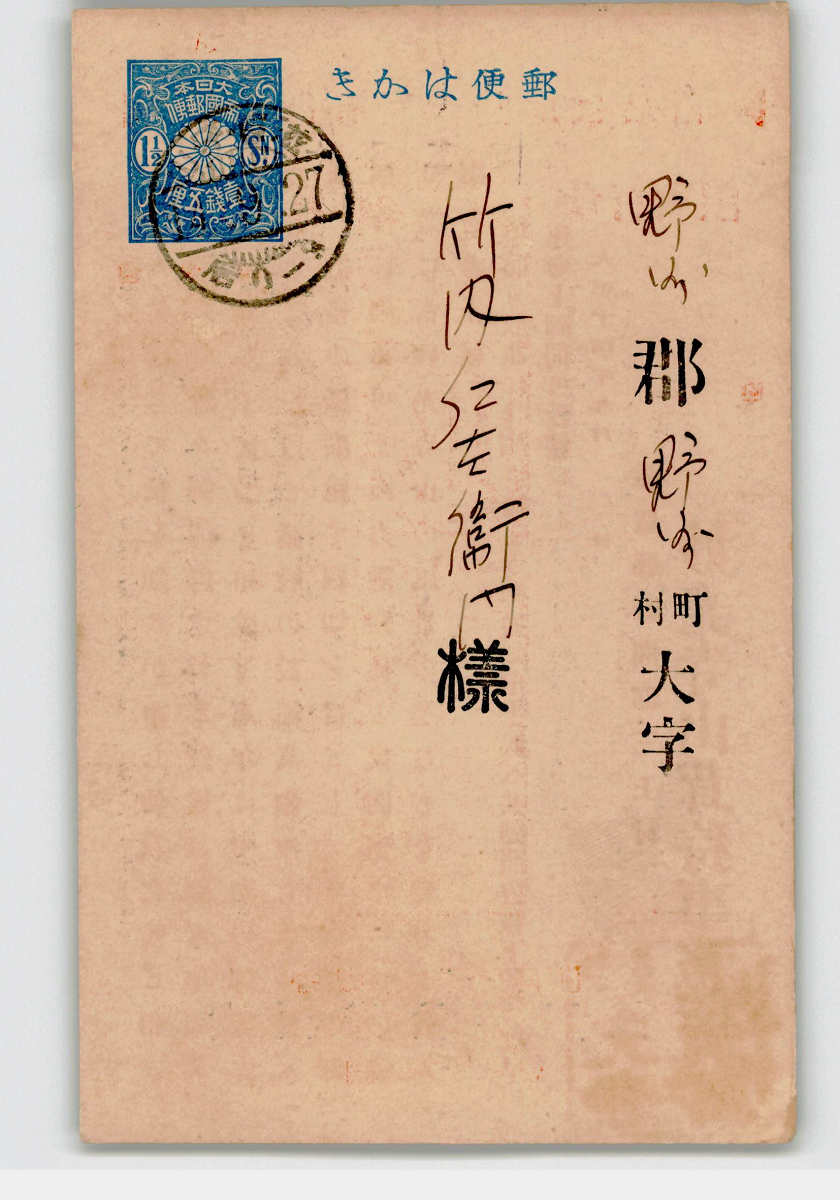 郵便はかき
大日本
帝國郵便
1½ SN.
壹錢五厘
27
野洲郡野洲町村大字
竹内仁左衛門様